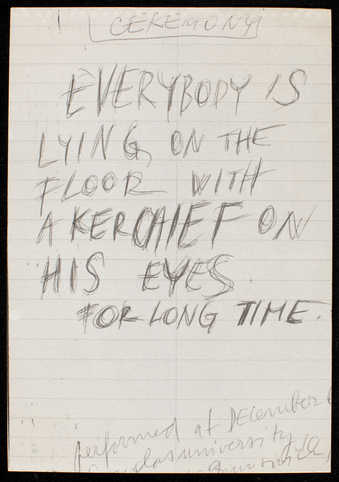 CEREMONY
EVERYBODY IS
LYING ON THE
FLOOR WITH
A KERCHIEF ON
HIS EYES
FOR LONG TIME.
performed at DECEMBER
university